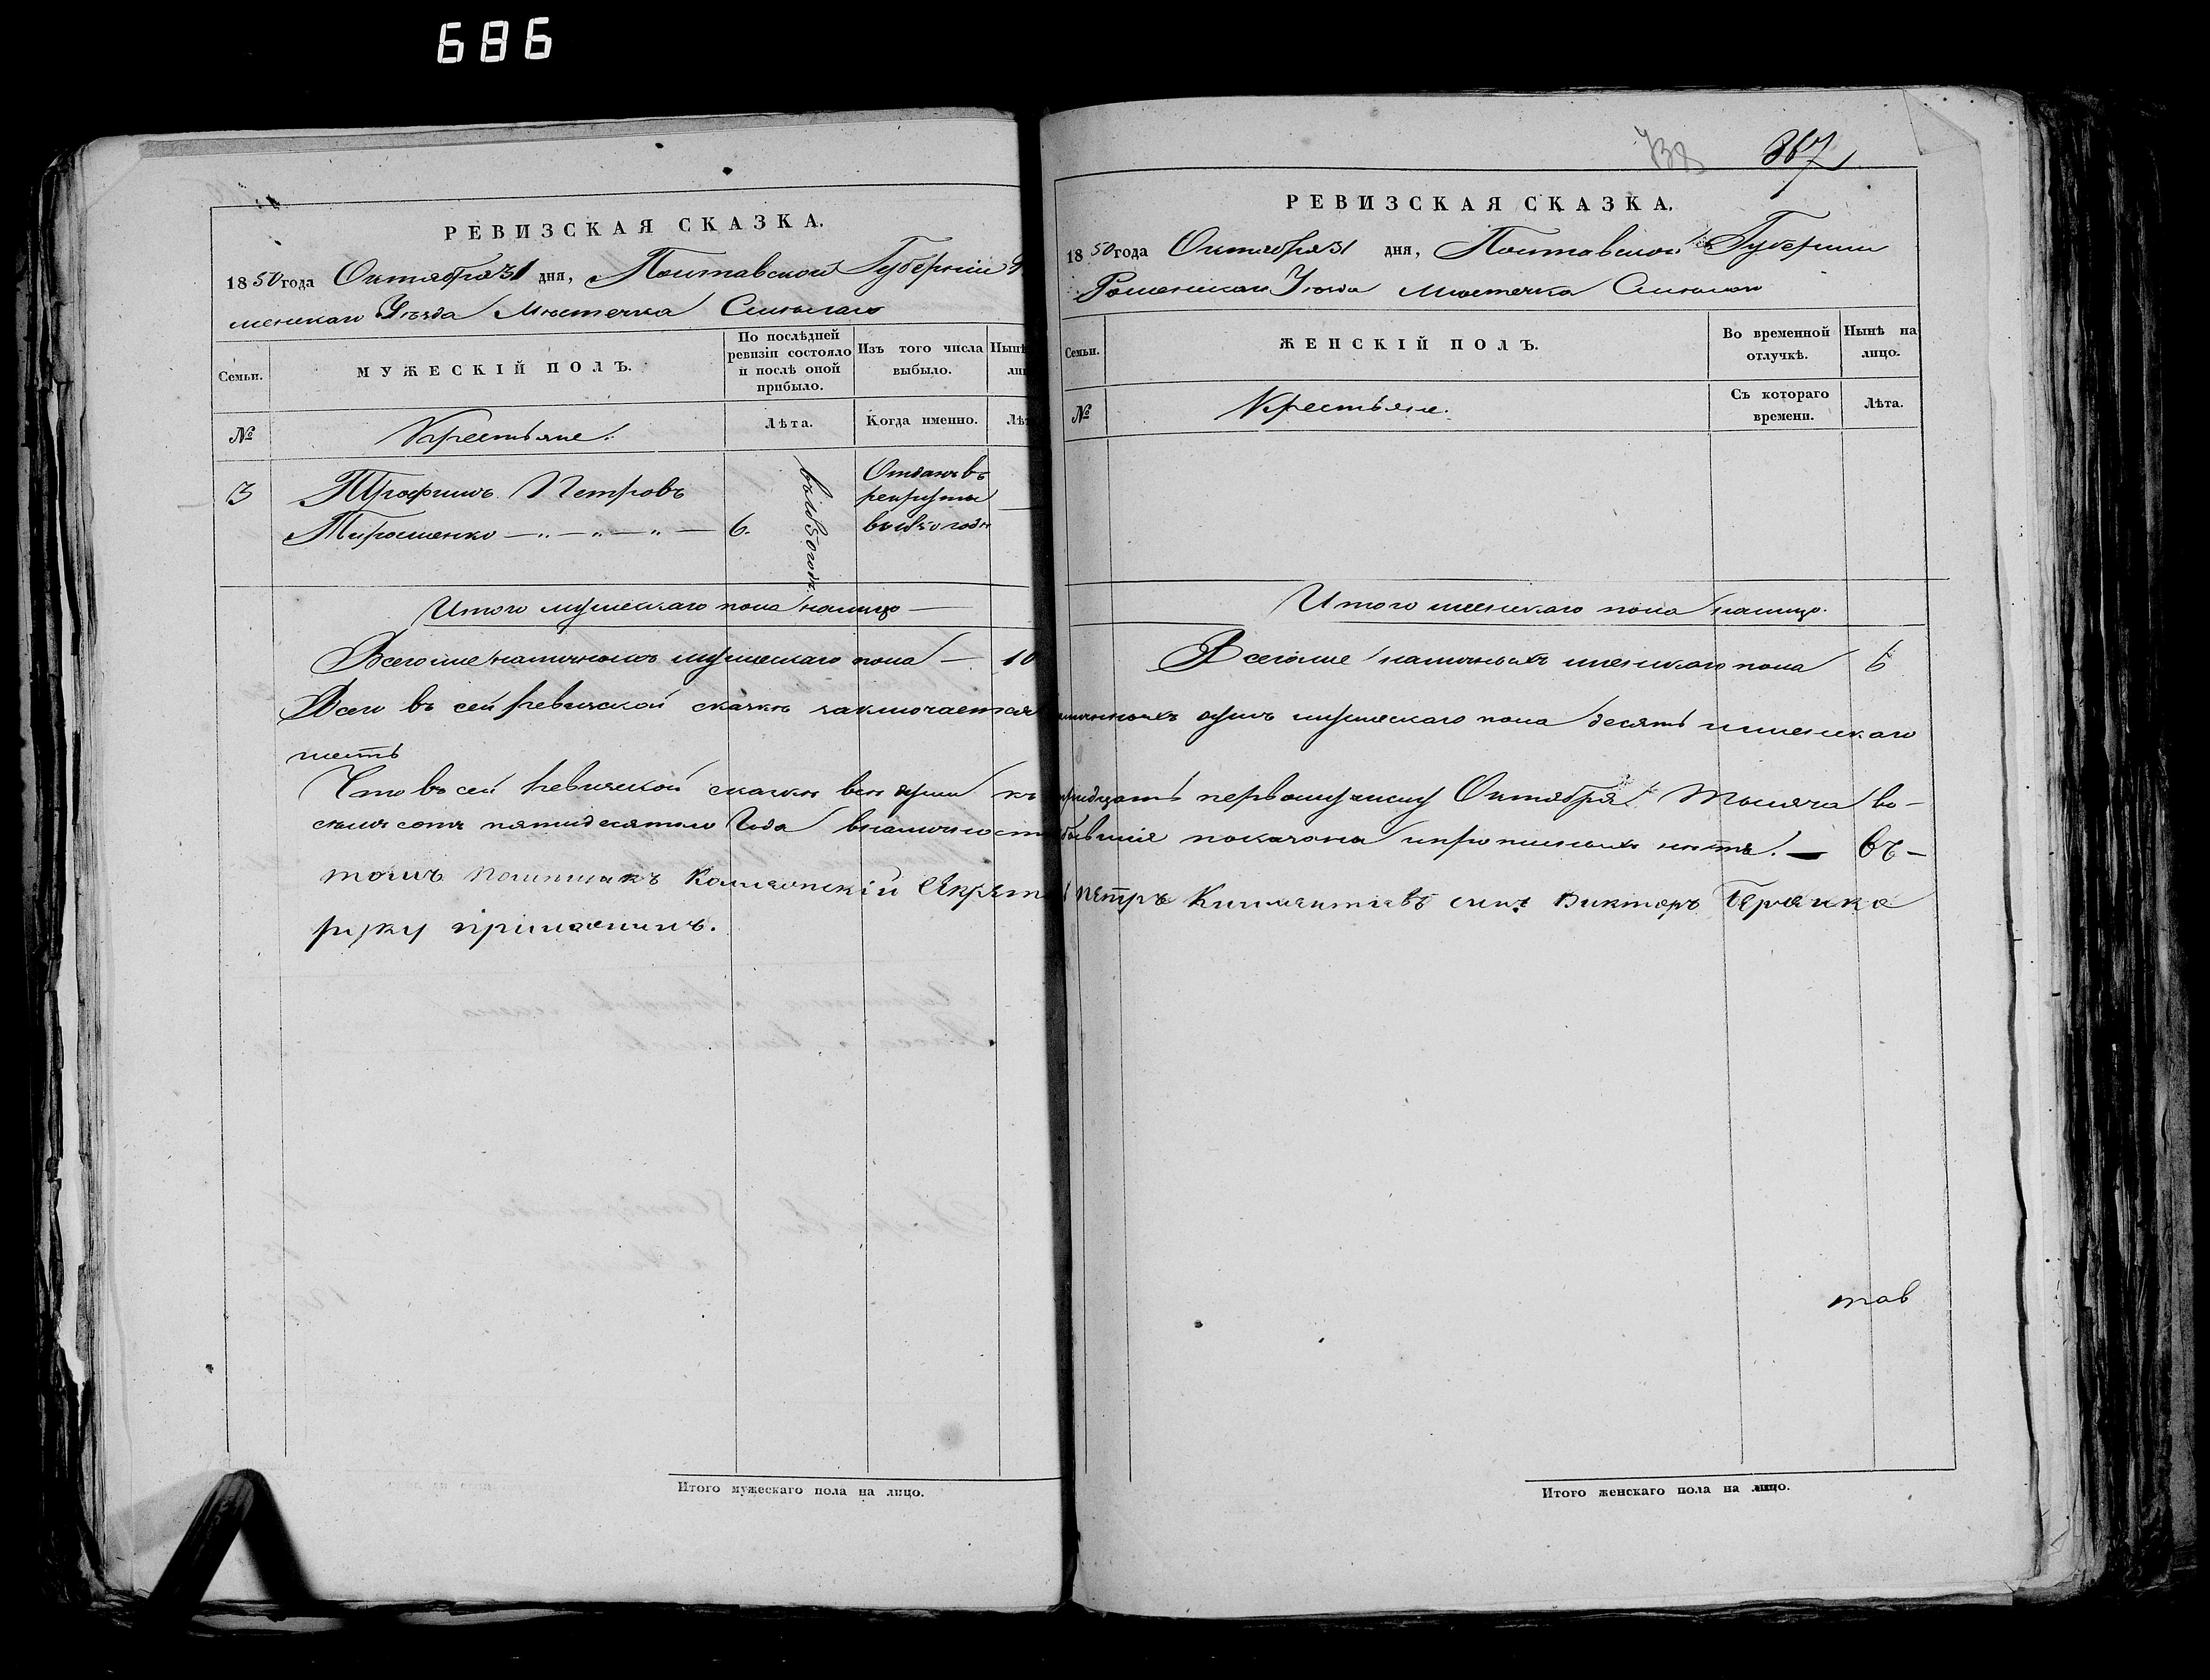 686
РЕВИЗСКАЯ СКАЗКА.
1850 года Октября 31 дня, Полтавской Губерніи Ро
менскаго Уѣзда Мѣстечка Смѣлаго
Семьи.
МУЖЕСКІЙ ПОЛЪ.
По послѣдней ревизіи состояло и послѣ оной прибыло.
Изъ того числа выбыло.
Нынѣ
ли
№
Крестьяне.
Лѣта.
Когда именно.
Лѣт
3
Трофимъ Петровъ
Мирошенко — „ — „ — „ — 6.
въ 1850 годѣ
Отданъ въ
рекруты
въ 1850 годѣ
Итого мужескаго пола налицо —
Всего же наличныхъ мужескаго пола — 10
367
РЕВИЗСКАЯ СКАЗКА.
1850 года Октября 31 дня, Полтавской Губерніи
Роменскаго Уѣзда Мѣстечка Смѣлаго
Семьи.
ЖЕНСКІЙ ПОЛЪ.
Во временной отлучкѣ.
Нынѣ на лицо.
№
Крестьяне.
Съ котораго времени.
Лѣта.
Итого женскаго пола налицо.
Всего же наличныхъ женскаго пола 6
Всего въ сей Ревизской сказкѣ заключается наличныхъ душъ мужескаго пола десять и женскаго
шесть
Что въ сей Ревизской сказкѣ всѣ души къ тридцать первому числу Октября Тысяча во-
семъ сотъ пятидесятого Года въ наличности бывшія показаны и прописныхъ нѣтъ. — въ —
томъ помѣщикъ Коллежскій Секретарь Петръ Климентіевъ сынъ
руку приложилъ.
тав
Итого мужескаго пола на лицо.
Итого женскаго пола на лицо.